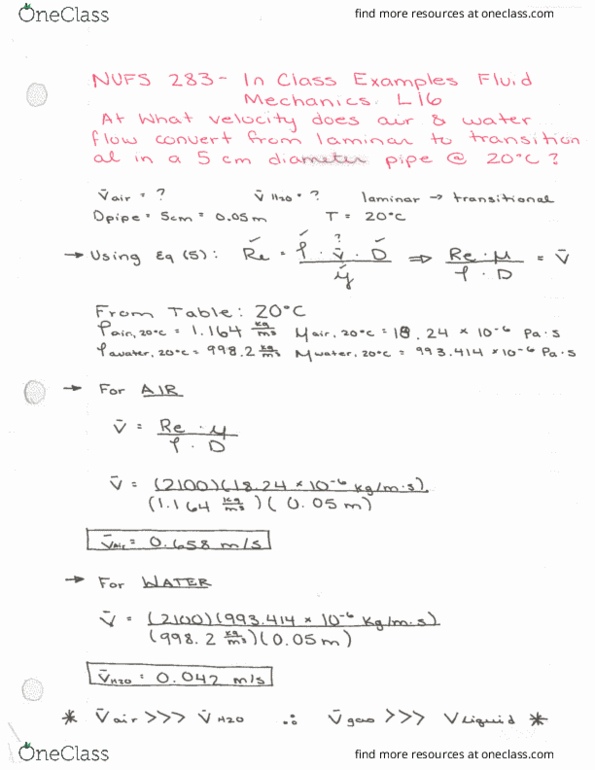 OneClass
find more resources at oneclass.com
NUFS 283 - In Class Examples Fluid
Mechanics. L16
At What velocity does air & water
flow convert from laminar to transition
al in a 5 cm diameter pipe @ 20°C?
V̄air = ? V̄H20 = ? laminar → transitional
Dpipe = 5cm = 0.05m T = 20°C
→ Using Eq (5): Re = ρ · v̄ · D / μ ⇒ Re · μ / ρ · D = V̄
?
From Table: 20°C
ρair, 20°C = 1.164 kg/m³ μair, 20°C = 18.24 × 10⁻⁶ Pa·s
ρwater, 20°C = 998.2 kg/m³ μwater, 20°C = 993.414 × 10⁻⁶ Pa·s
→ For AIR
V̄ = Re · μ / ρ · D
V̄ = (2100)(18.24 × 10⁻⁶ kg/m·s) / (1.164 kg/m³)(0.05m)
V̄Air = 0.658 m/s
→ For WATER
V̄ = (2100)(993.414 × 10⁻⁶ Kg/m·s) / (998.2 kg/m³)(0.05m)
V̄H20 = 0.042 m/s
* V̄air >>> V̄H20 ∴ V̄gas >>> VLiquid *
OneClass
find more resources at oneclass.com